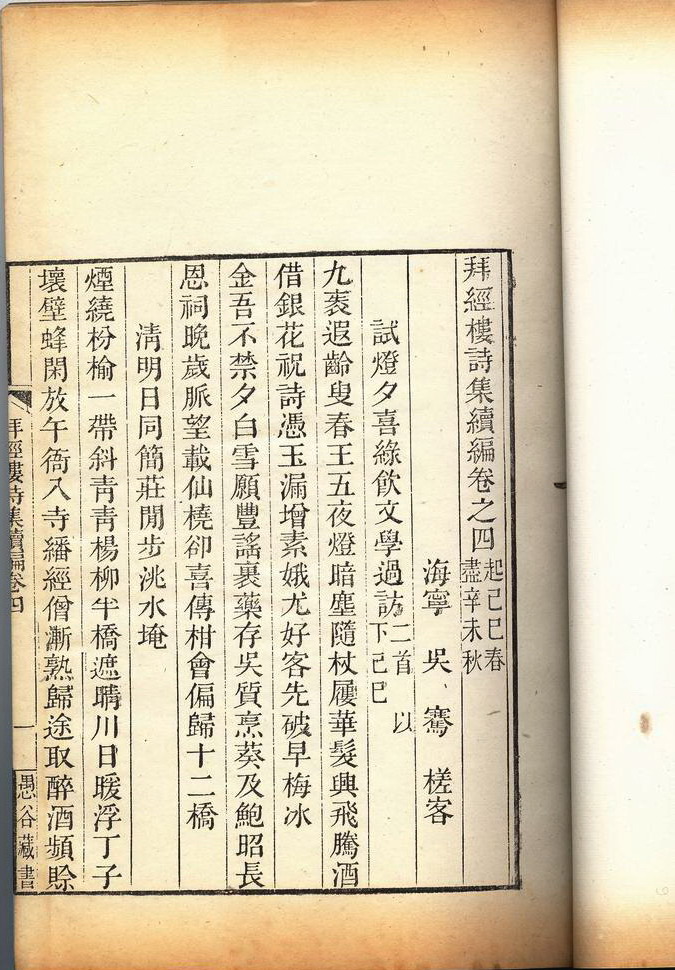 拜經樓詩集續編卷之四起己巳春
盡辛未秋
海寧 吳 騫 槎客
試燈夕喜綠飲文學過訪二首 以
下己巳
九袠遐齡叟春王五夜燈暗塵隨杖屨華髮興飛騰酒
借銀花祝詩憑玉漏增素娥尤好客先破早梅冰
金吾不禁夕白雪願豐謠裹藥存吳質烹葵及鮑昭長
恩祠晚歲脈望載仙橈卻喜傳柑會偏歸十二橋
清明日同簡莊閒步洮水埯
煙繞枌榆一帶斜靑靑楊柳半橋遮晴川日暖浮丁子
壞壁蜂閑放午衙入寺繙經僧漸熟歸途取醉酒頻賖
拜經樓詩集續編卷四
一
愚谷藏書